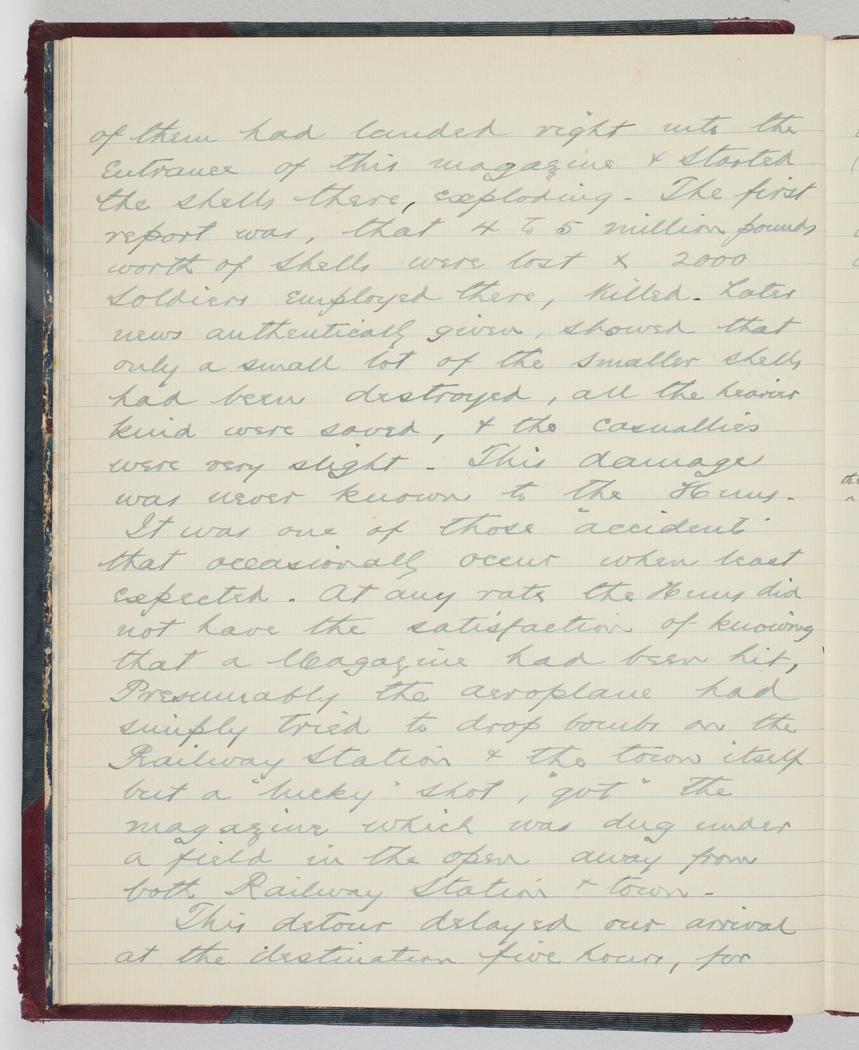 of them had landed right into the
Entrance of this magazine & Started
the shells there, exploding. The first
report was, that 4 to 5 million pounds
worth of shells were lost & 2000
soldiers Employed there, killed. Later
news authentically given, showed that
only a small lot of the smaller shells
had been destroyed, all the heavier
kind were saved, & the casualties
were very slight. This damage
was never known to the Huns.
It was one of those "accident"
that occasionally occur when least
expected. At any rate the Huns did
not have the satisfaction of knowing
that a Magazine had been hit,
Presumably the aeroplane had
simply tried to drop bombs on the
Railway Station & the town itself
but a "lucky" shot, "got" the
magazine which was dug under
a field in the open away from
both Railway Station & town.
This detour delayed our arrival
at the destination five hours, for